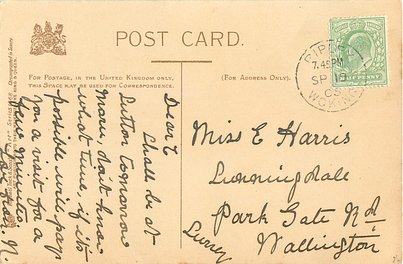 POST CARD.
FOR POSTAGE, IN THE UNITED KINGDOM ONLY,
THIS SPACE MAY BE USED FOR CORRESPONDENCE.
(FOR ADDRESS ONLY.)
HALFPENNY
RIPLEY
7.45PM
SP 19
05
WOKING
Dear E
Shall be at
Sutton tomorrow
dont know
what time, if its
possible will pay
you a visit for a
few minutes
Miss E Harris
Sunningdale
Park Gate Rd
Wallington
Surrey